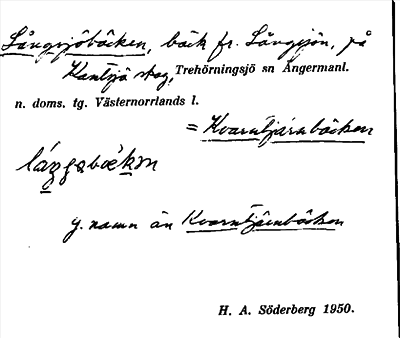 Långsjöbäcken, bäck fr. Långsjön, på
Kantsjö skog, Trehörningsjö sn Ångermanl.
n. doms. tg. Västernorrlands l.
= Kvarntjärnbäcken
y. namn än Kvarntjärnbäcken
H. A. Söderberg 1950.